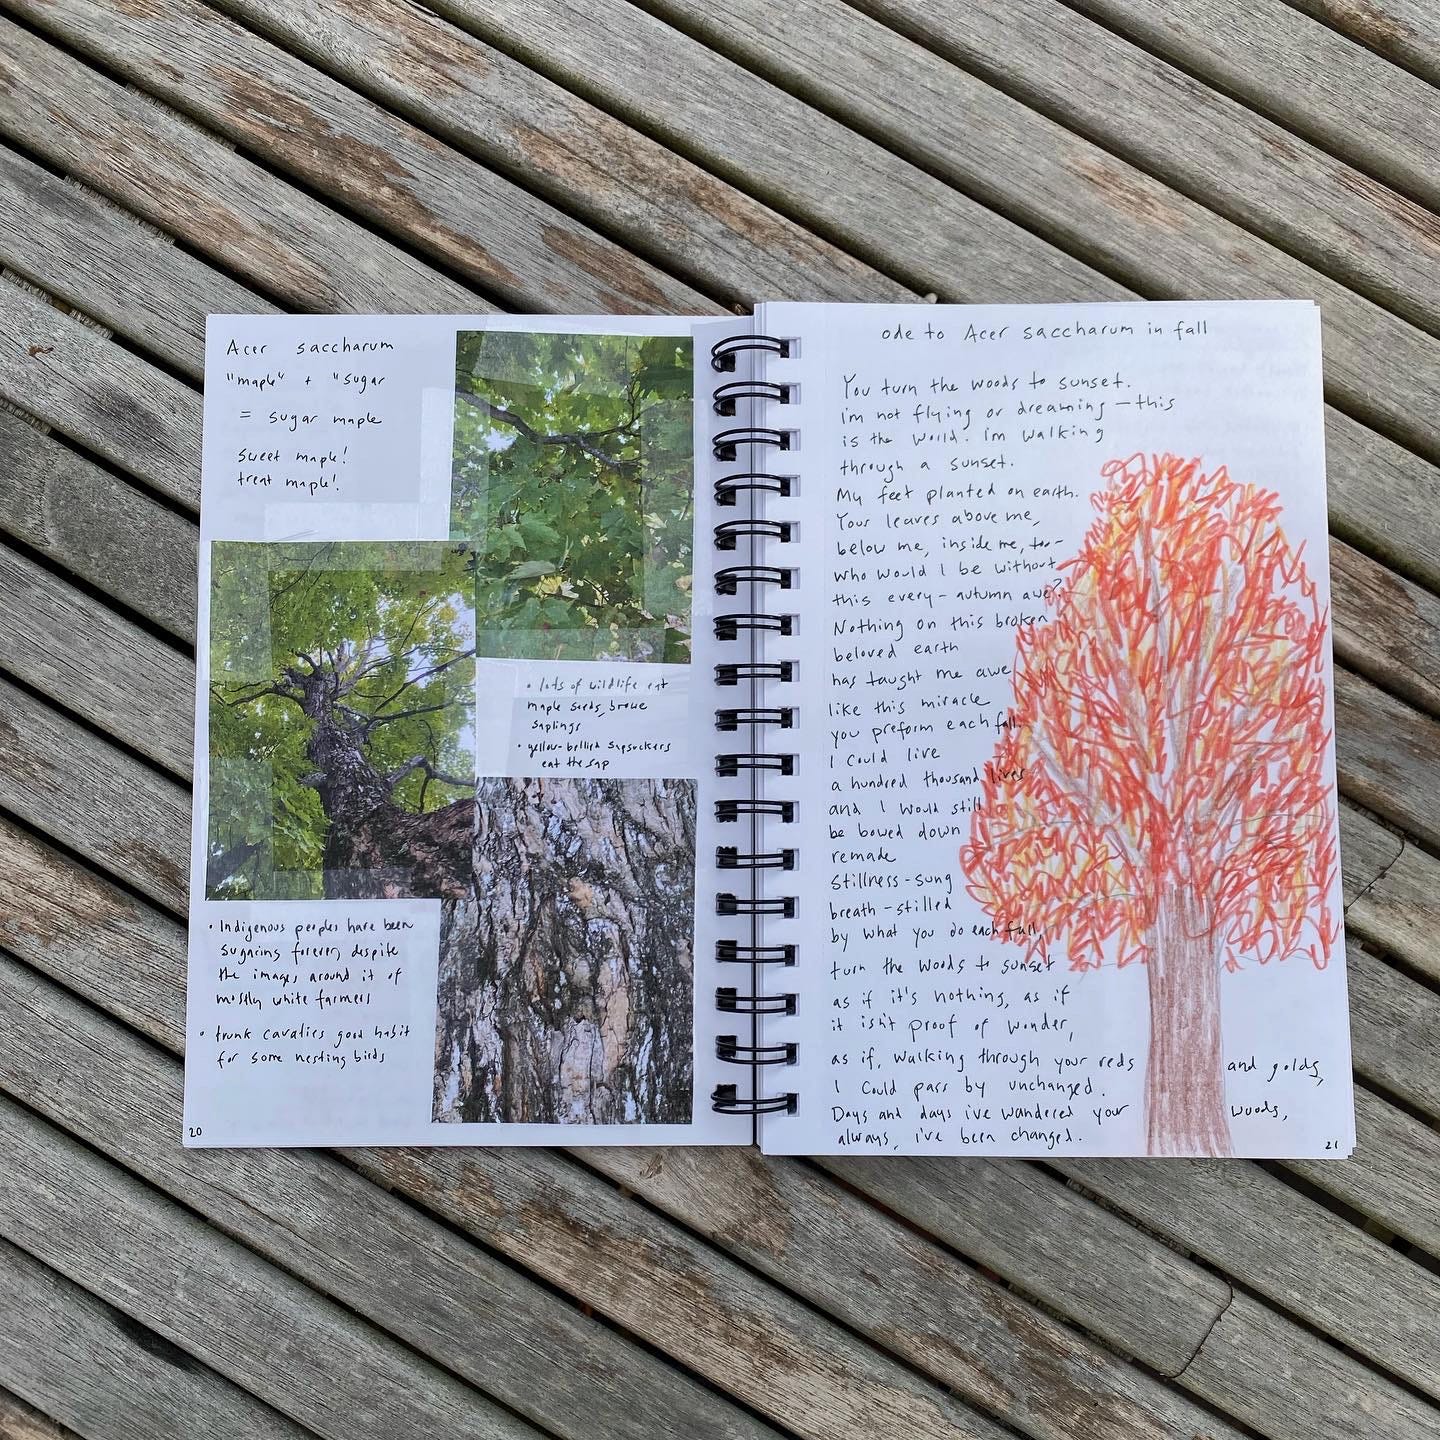 Acer saccharum
"maple" + "sugar
= sugar maple
sweet maple!
treat maple!
• lots of wildlife eat
maple seeds, browse
saplings
• yellow-bellied sapsuckers
eat the sap
• Indigenous peoples have been
sugaring forever, despite
the images around it of
mostly white farmers
• trunk cavaties good habit
for some nesting birds
20
ode to Acer saccharum in fall
You turn the woods to sunset.
i'm not flying or dreaming — this
is the world. i'm walking
through a sunset.
My feet planted on earth.
Your leaves above me,
below me, inside me,
who would I be without
this every-autumn awe?
Nothing on this broken
beloved earth
has taught me awe
like this miracle
you preform each fall.
I could live
a hundred thousand lives
and I would still
be bowed down
remade
stillness-sung
breath-stilled
by what you do each fall,
turn the woods to sunset
as if it's nothing, as if
it isn't proof of wonder,
as if, walking through your reds and golds,
I could pass by unchanged.
Days and days i've wandered your woods,
always, i've been changed.
21